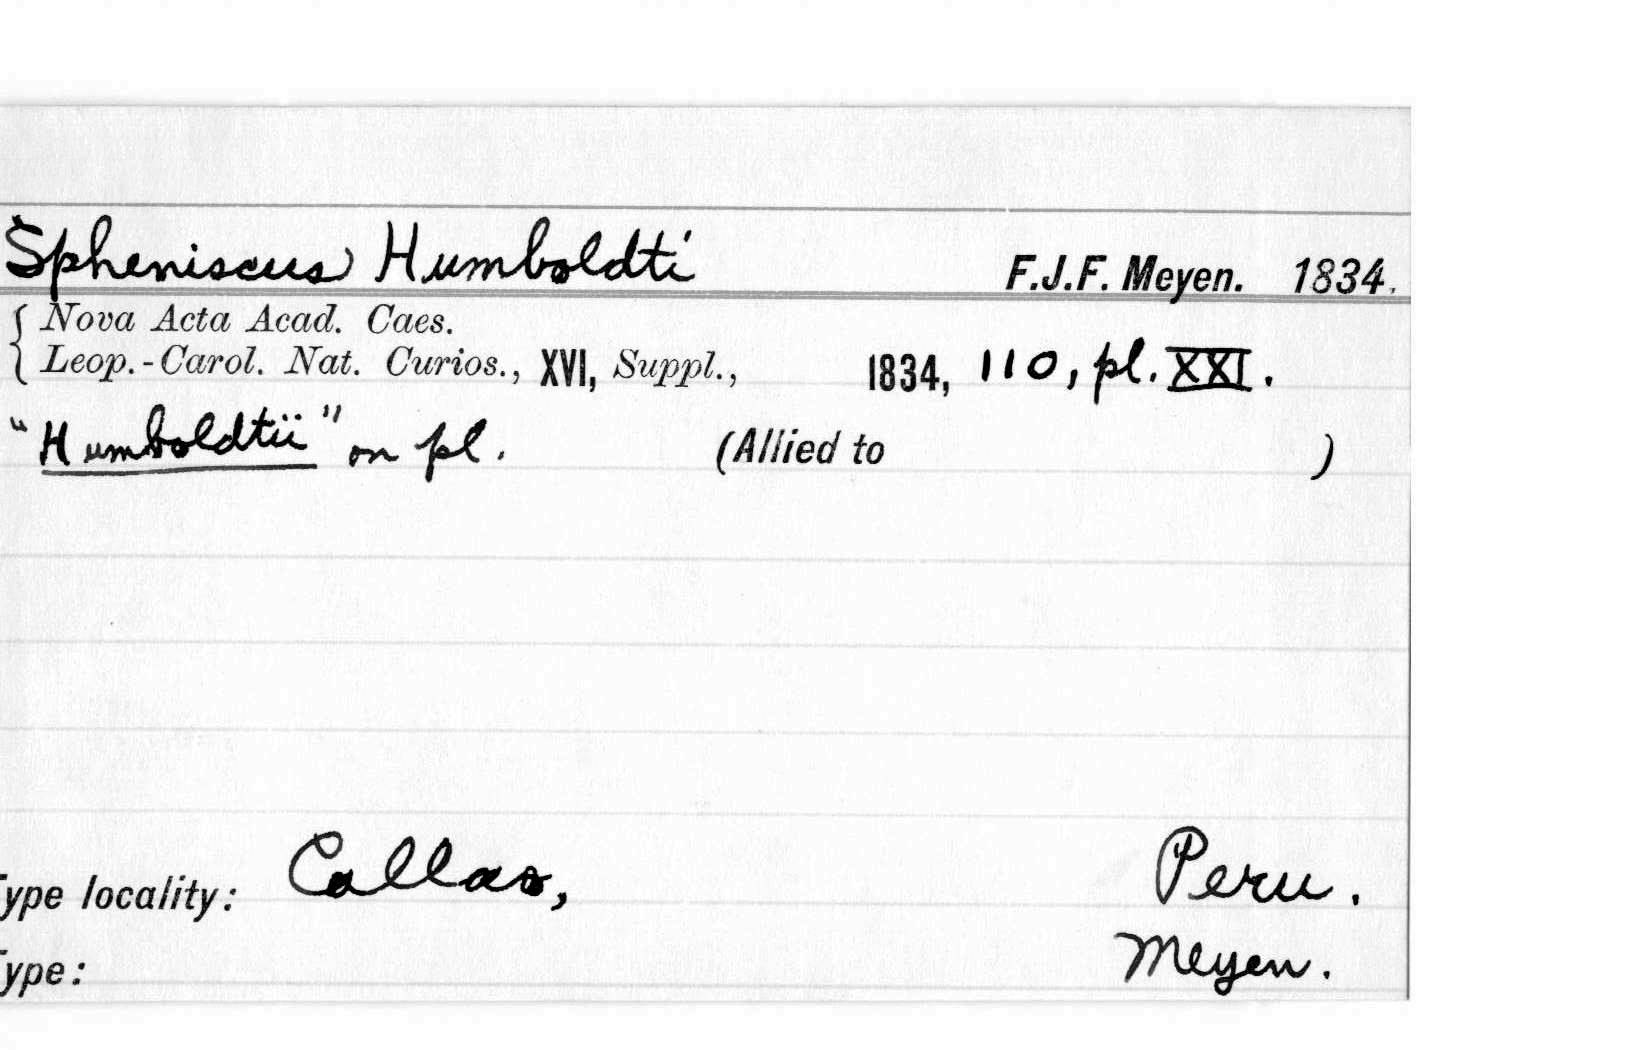 Spheniscus Humboldti F.J.F. Meyen. 1834.
Nova Acta Acad. Caes.
Leop.-Carol. Nat. Curios., XVI, Suppl., 1834, 110, pl. XXI.
"Humboldtii" on pl. (Allied to )
Type locality: Callao, Peru.
Type: Meyen.